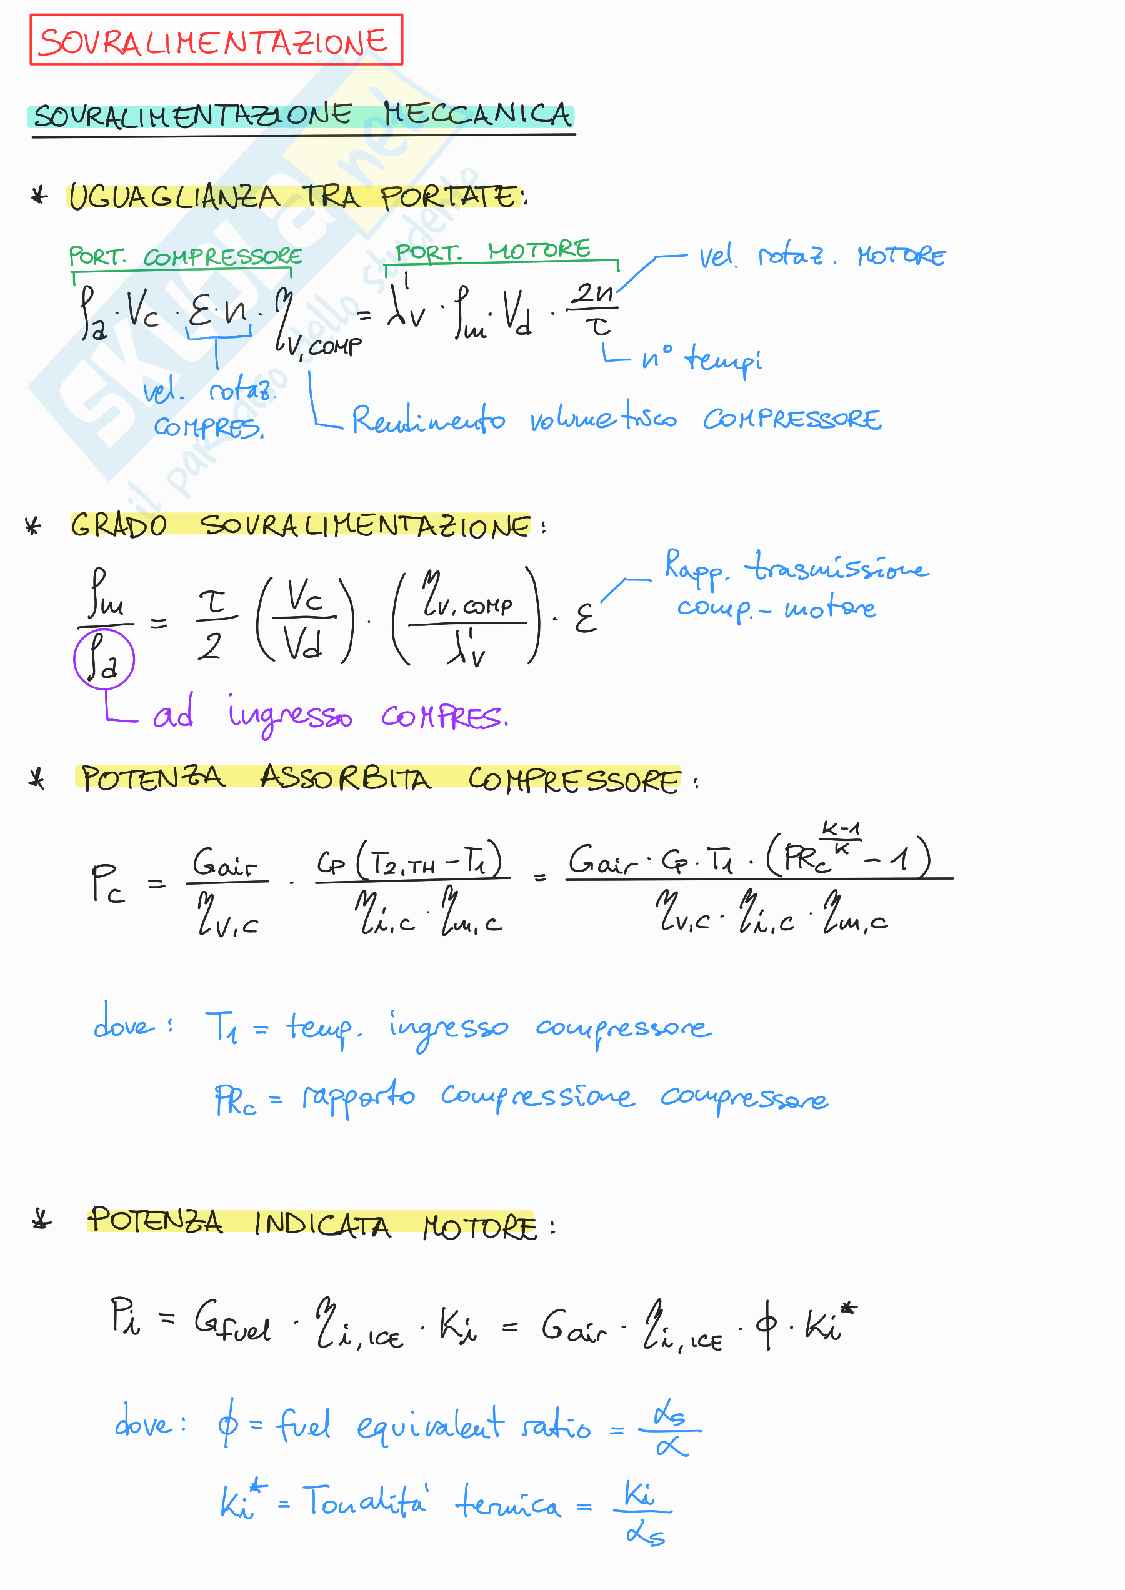 SOVRALIMENTAZIONE
SOVRALIMENTAZIONE MECCANICA
* UGUAGLIANZA TRA PORTATE:
PORT. COMPRESSORE PORT. MOTORE vel. rotaz. MOTORE
ρa · Vc · ε · n · ηv,COMP = λ'v · ρm · Vd · 2n/τ
n° tempi
vel. rotaz. COMPRES.
Rendimento volumetrico COMPRESSORE
* GRADO SOVRALIMENTAZIONE:
ρm/ρa = τ/2 (Vc/Vd) · (ηv,COMP/λ'v) · ε
Rapp. trasmissione
comp.- motore
ad ingresso COMPRES.
* POTENZA ASSORBITA COMPRESSORE:
Pc = Gair/ηv,c · cp(T2,TH - T1)/(ηi,c · ηm,c) = Gair · cp · T1 · (PRc^((k-1)/k) - 1)/(ηv,c · ηi,c · ηm,c)
dove: T1 = temp. ingresso compressore
PRc = rapporto compressione compressore
* POTENZA INDICATA MOTORE:
Pi = Gfuel · ηi,ICE · Ki = Gair · ηi,ICE · ϕ · Ki*
dove: ϕ = fuel equivalent ratio = αs/α
Ki* = Tonalità termica = Ki/αs
SKUOLA.net
il paradiso dello studente